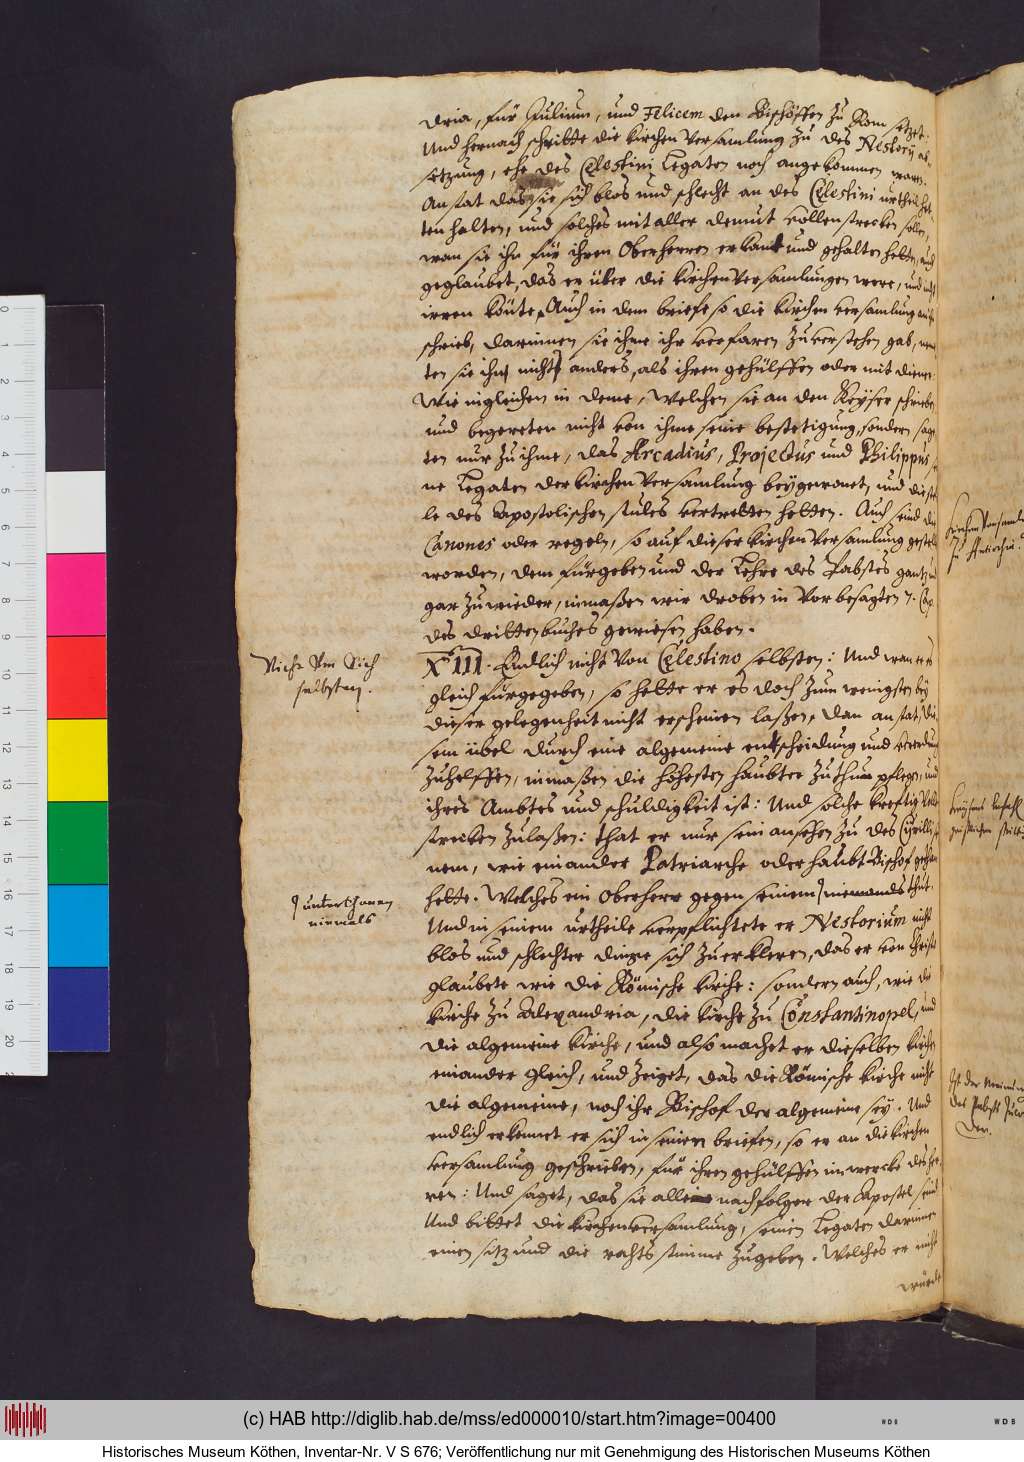 dria, für Julium, und Felicem den Bischöffen zu Rom setzet.
Und hernach schritte die kirchen versamlung zu des Nestorij ab-
setzung, ehe des Celestini Legaten noch angekommen waren.
An stat das sie sich blos und schlecht an des Celestini urtheil het-
ten halten, und solches mit aller demut vollenstrecken sollen,
wan sie ihn für ihren Oberherren erkant und gehalten hetten, auch
geglaubet, das er über die kirchen versamlungen were, und nicht
irren könte. Auch in dem briefe so die kirchen versamlung an ihn
schrieb, darinnen sie ihme ihr verfaren zuverstehen gab,
ten sie ihn nicht anders, als ihren gehülffen oder mit diener.
Wie ingleichen in deme, welchen sie an den Keyser schrieben
und begereten nicht von ihme seine bestetigung, sondern sag-
ten nur zu ihme, das Arcadius, Projectus und Philippus, sei-
ne Legaten der kirchen versamlung beygewonet, und die stel-
le des Apostolischen stules vertretten hetten. Auch seind die
Canones oder regeln, so auf dieser kirchen versamlung gestelt
worden, dem fürgeben und der Lehre des Pabstes gantz und
gar zuwieder, inmaßen wir droben in vorbesagten 7. Cap.
des dritten buches gewiesen haben.
Nicht von Sich
selbsten.
XIII. Endlich nicht von Celestino selbsten: Und wan er es
gleich fürgegeben, so hette er es doch zum wenigsten bey
dieser gelegenheit nicht erscheinen laßen, dan an stat, die-
sem übel durch eine algemeine entscheidung und
zuhelffen, inmaßen die höhesten häubter zuthun pflegen, und
ihres Ambtes und schuldigkeit ist: Und solche kreftig voll-
strecken zulaßen: that er nur sein ansehen zu des Cyrilli sei-
nem, wie ein ander Patriarche oder haubt Bischof gethan
hette. Welches ein Oberherr gegen seinem niemands thut.
unterthanen
niemals
Und in seinem urtheile verpflichtete er Nestorium nicht
blos und schlechter dinge sich zuerkleren, das er von Christo
glaubete wie die Römische kirche: sondern auch, wie die
kirche zu Alexandria, die kirche zu Constantinopel, und
die algemeine kirche, und also machet er dieselben kirchen
einander gleich, und zeiget, das die Römische kirche nicht
die algemeine, noch ihr Bischof der algemeine sey. Und
endlich erkennet er sich in seinen briefen, so er an die kirchen
versamlung geschrieben, für ihren gehülffen im wercke des her-
ren: Und saget, das sie alle nachfolger der Apostel seind
Und bittet die kirchen versamlung, seinen Legaten darinnen
einen sitz und die rahts stimme zugeben. Welches er nicht
würde
(c) HAB http://diglib.hab.de/mss/ed000010/start.htm?image=00400
Historisches Museum Köthen, Inventar-Nr. V S 676; Veröffentlichung nur mit Genehmigung des Historischen Museums Köthen